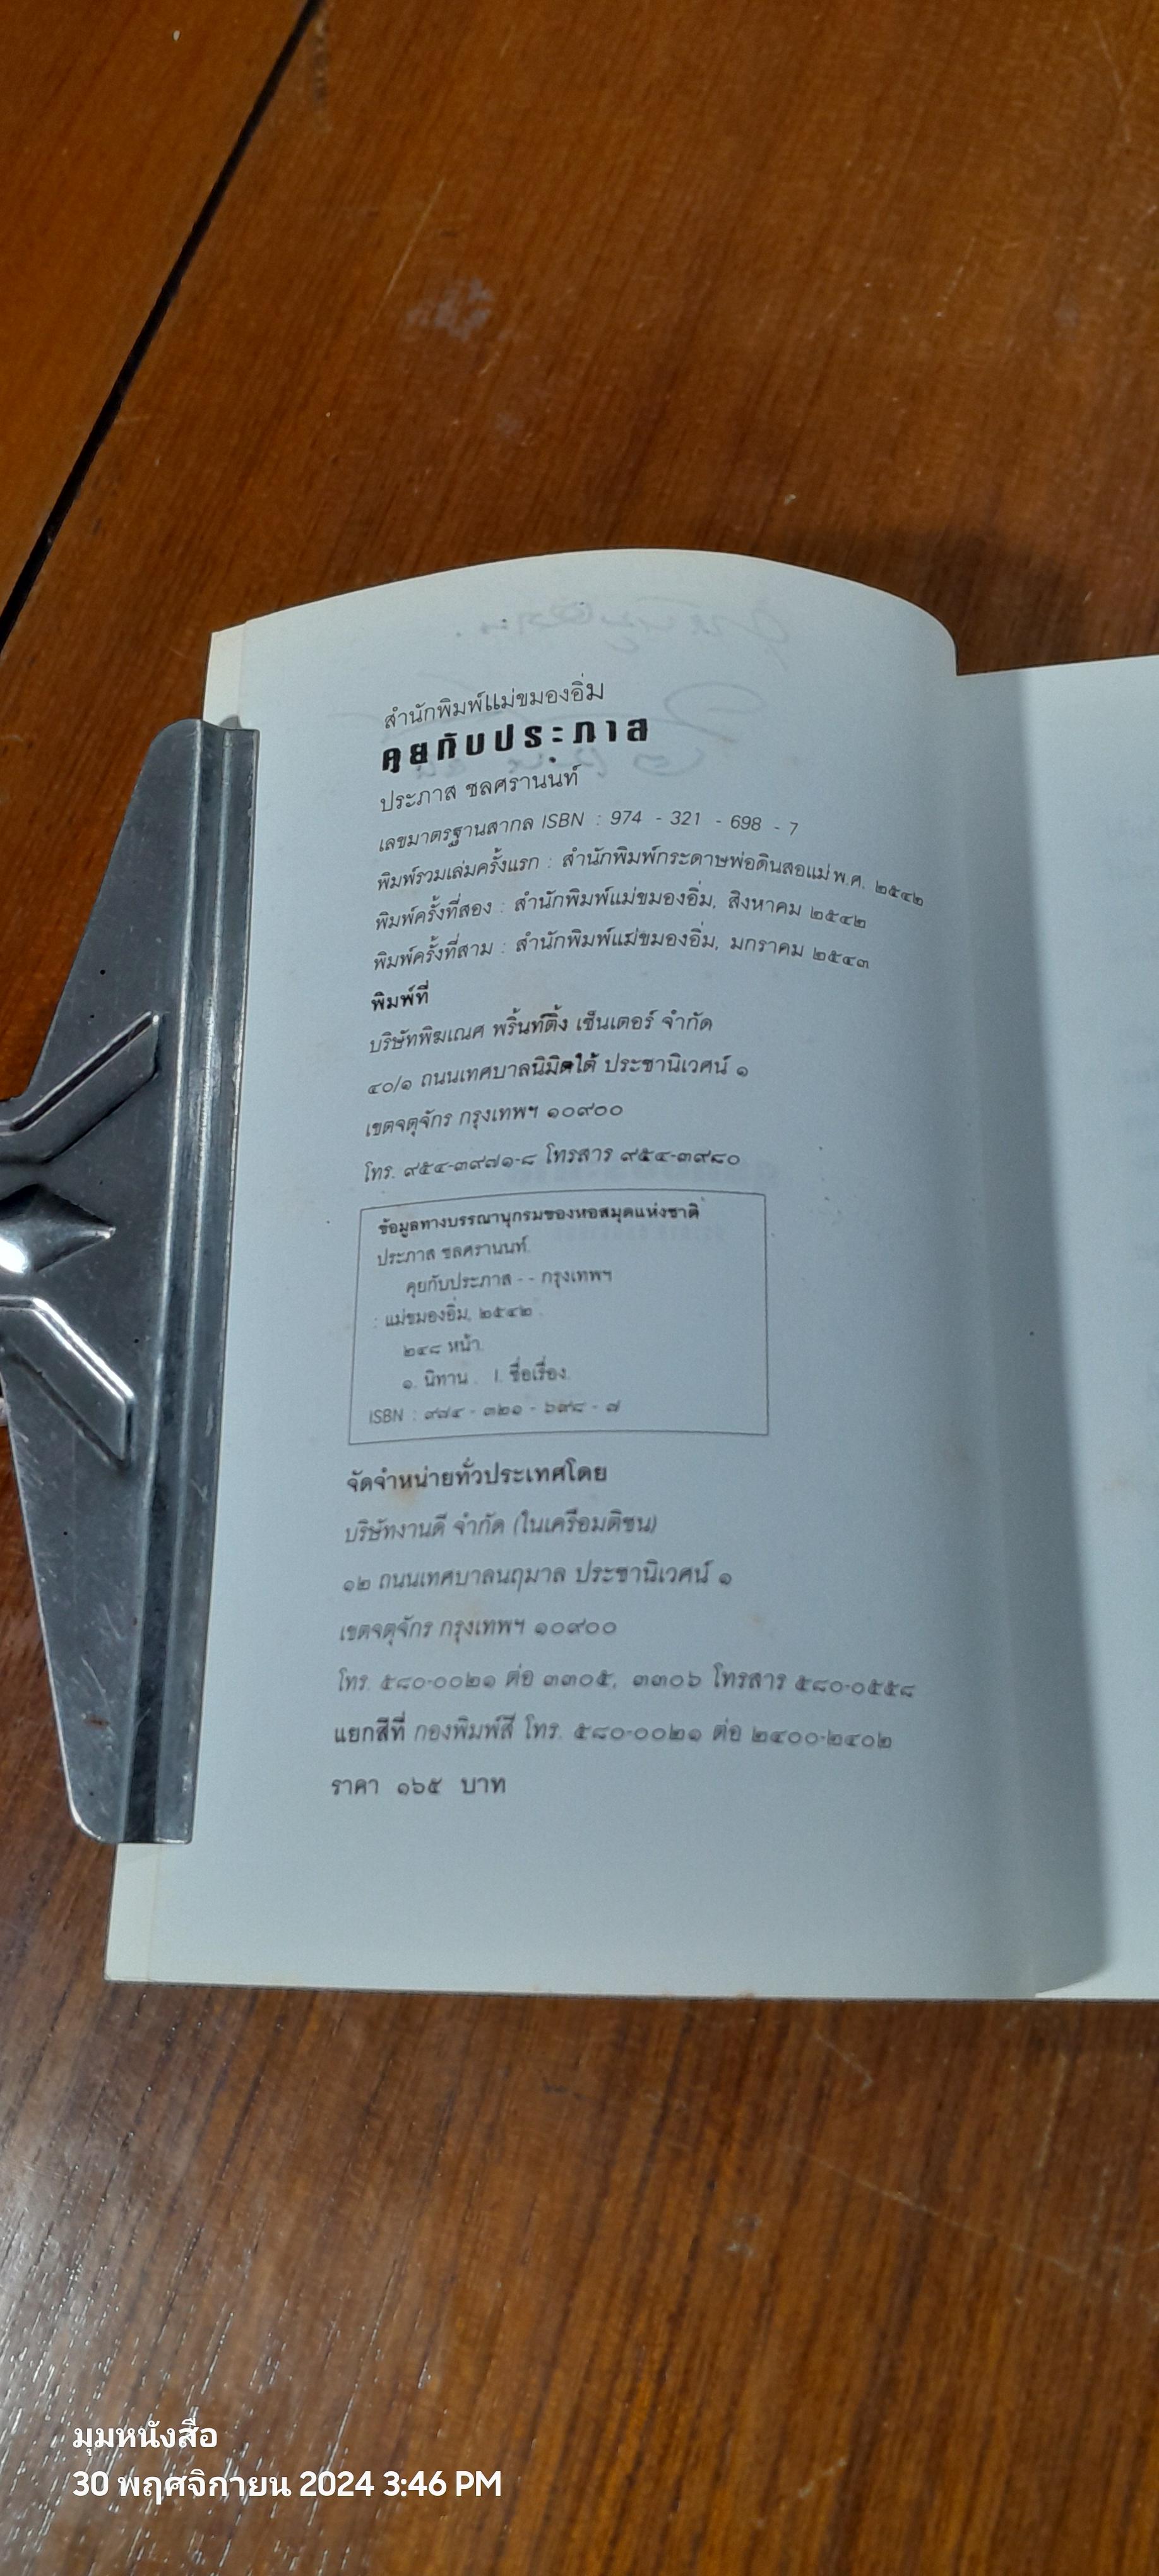 สำนักพิมพ์แม่ขมองอิ่ม
คุยกับประภาส
ประภาส ชลศรานนท์
เลขมาตรฐานสากล ISBN : 974 - 321 - 698 - 7
พิมพ์รวมเล่มครั้งแรก : สำนักพิมพ์กระดาษพ่อดินสอแม่ พ.ศ. ๒๕๔๒
พิมพ์ครั้งที่สอง : สำนักพิมพ์แม่ขมองอิ่ม, สิงหาคม ๒๕๔๒
พิมพ์ครั้งที่สาม : สำนักพิมพ์แม่ขมองอิ่ม, มกราคม ๒๕๔๓
พิมพ์ที่
บริษัทพิฆเณศ พริ้นท์ติ้ง เซ็นเตอร์ จำกัด
๔๐/๑ ถนนเทศบาลนิมิตใต้ ประชานิเวศน์ ๑
เขตจตุจักร กรุงเทพฯ ๑๐๙๐๐
โทร. ๙๕๔-๓๙๗๑-๘ โทรสาร ๙๕๔-๓๙๘๐
ข้อมูลทางบรรณานุกรมของหอสมุดแห่งชาติ
ประภาส ชลศรานนท์.
คุยกับประภาส - - กรุงเทพฯ
: แม่ขมองอิ่ม, ๒๕๔๒ .
๒๔๘ หน้า.
๑. นิทาน . I. ชื่อเรื่อง.
ISBN : ๙๗๔ - ๓๒๑ - ๖๙๘ - ๗
จัดจำหน่ายทั่วประเทศโดย
บริษัทงานดี จำกัด (ในเครือมติชน)
๑๒ ถนนเทศบาลนฤมาล ประชานิเวศน์ ๑
เขตจตุจักร กรุงเทพฯ ๑๐๙๐๐
โทร. ๕๘๐-๐๐๒๑ ต่อ ๓๓๐๕, ๓๓๐๖ โทรสาร ๕๘๐-๐๕๕๘
แยกสีที่ กองพิมพ์สี โทร. ๕๘๐-๐๐๒๑ ต่อ ๒๔๐๐-๒๔๐๒
ราคา ๑๖๕ บาท
มุมหนังสือ
30 พฤศจิกายน 2024 3:46 PM